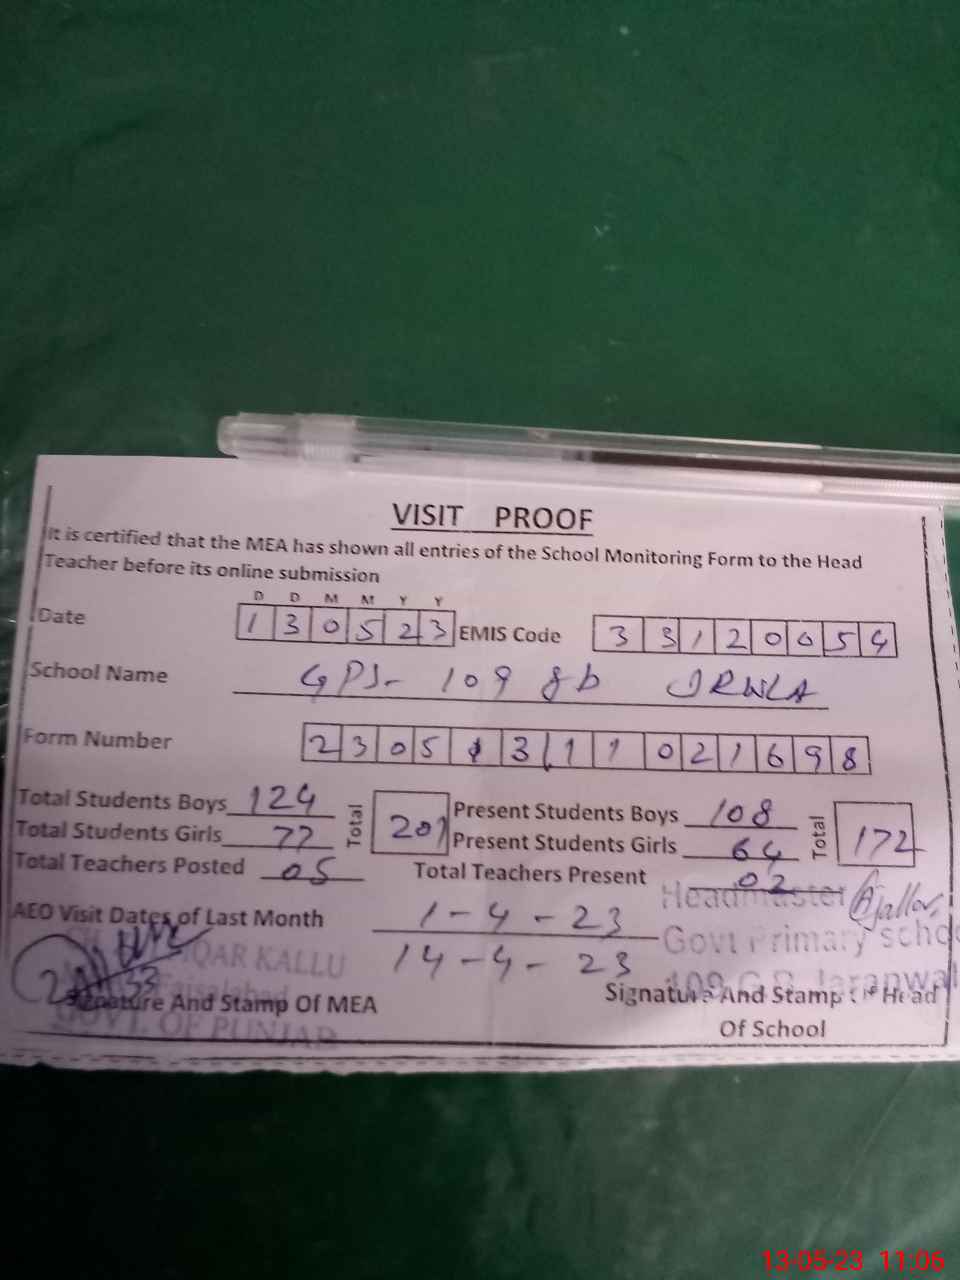 VISIT PROOF
It is certified that the MEA has shown all entries of the School Monitoring Form to the Head
Teacher before its online submission
D D M M Y Y
Date 1 3 0 5 2 3 EMIS Code 3 3 1 2 0 0 5 4
School Name GPS- 109 gb JRWLA
Form Number 2 3 0 5 1 3 1 1 1 0 2 1 6 9 8
Total Students Boys 124 Total 201 Present Students Boys 108 Total 172
Total Students Girls 77 Present Students Girls 64
Total Teachers Posted 05 Total Teachers Present 02
AEO Visit Dates of Last Month 1-4-23
14-4-23
QAR KALLU
Faisalabad
GOVT. OF PUNJAB
Signature And Stamp Of MEA
Headmaster
Govt Primary Scho
109 G.B. Jaranwal
Signature And Stamp Of Head
Of School
13-05-23 11:06